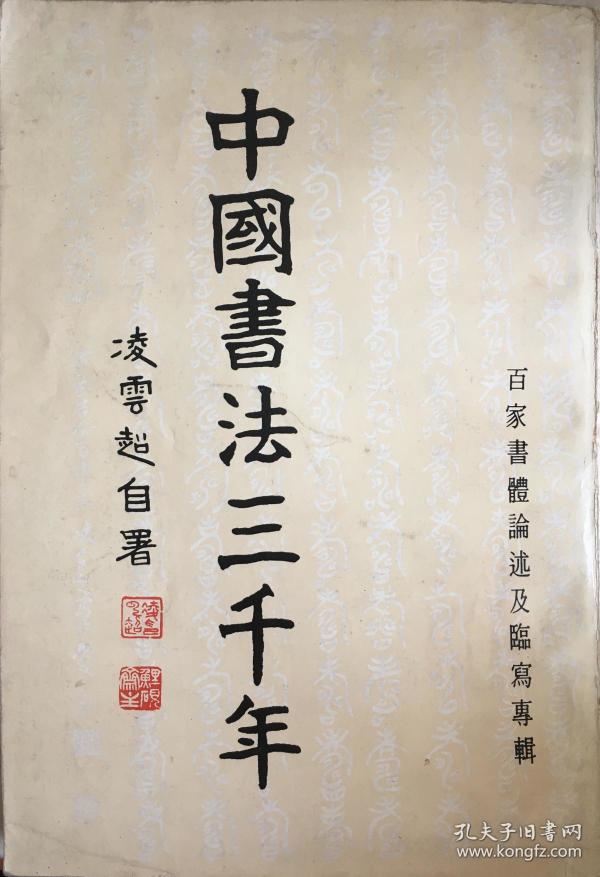 百家書體論述及臨寫專輯
中國書法三千年
凌雲超自署
孔夫子旧书网
www.kongfz.com